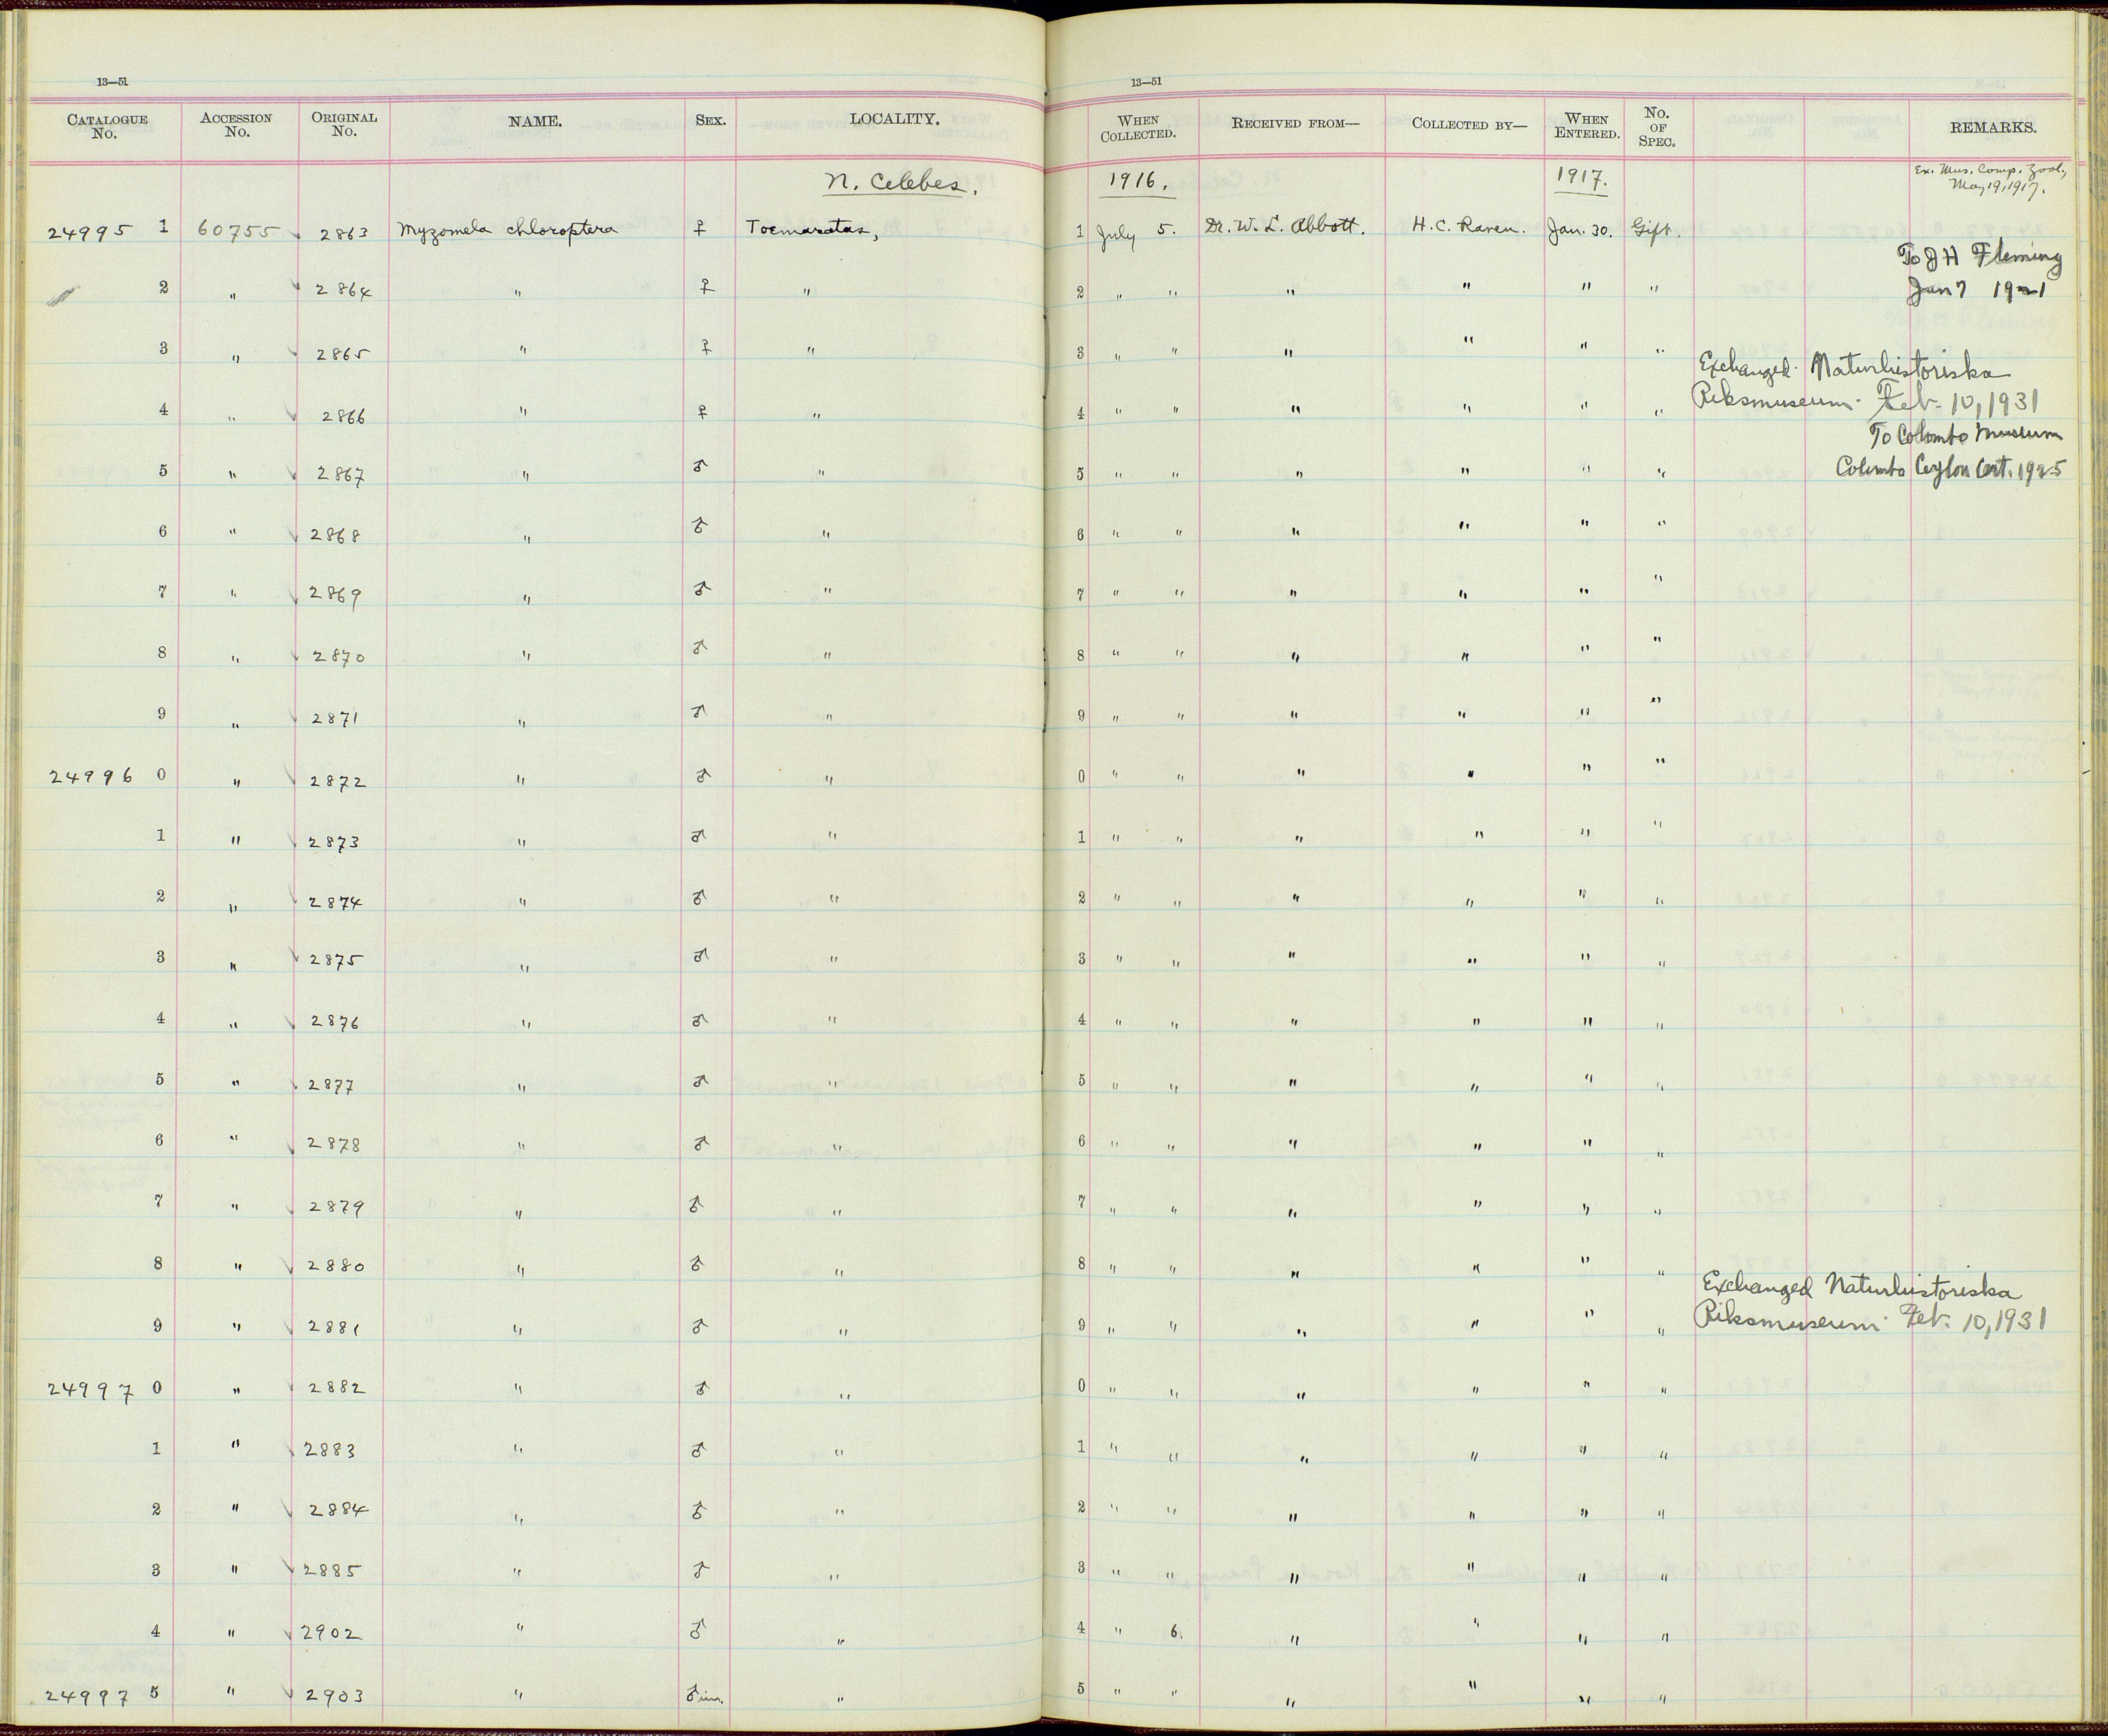 13—51 13—51
CATALOGUE No. ACCESSION No. ORIGINAL No. NAME. SEX. LOCALITY. WHEN COLLECTED. RECEIVED FROM— COLLECTED BY— WHEN ENTERED. No. OF SPEC. REMARKS.
N. Celebes. 1916. 1917. Ex. Mus. Comp. Zool., May 19, 1917.
24995 1 60755 2863 Myzomela chloroptera ♀ Toemaratas, 1 July 5. Dr. W. L. Abbott. H. C. Raven. Jan. 30. Gift.
To J H Fleming
2 " 2864 " ♀ " 2 " " " " " " Jan 7 1921
3 " 2865 " ♀ " 3 " " " " " "
Exchanged Naturhistoriska
4 " 2866 " ♀ " 4 " " " " " " Riksmuseum. Feb. 10, 1931
To Colombo Museum
5 " 2867 " ♂ " 5 " " " " " " Colombo Ceylon Oct. 1925
6 " 2868 " ♂ " 6 " " " " " "
7 " 2869 " ♂ " 7 " " " " " "
8 " 2870 " ♂ " 8 " " " " " "
9 " 2871 " ♂ " 9 " " " " " "
24996 0 " 2872 " ♂ " 0 " " " " " "
1 " 2873 " ♂ " 1 " " " " " "
2 " 2874 " ♂ " 2 " " " " " "
3 " 2875 " ♂ " 3 " " " " " "
4 " 2876 " ♂ " 4 " " " " " "
5 " 2877 " ♂ " 5 " " " " " "
6 " 2878 " ♂ " 6 " " " " " "
7 " 2879 " ♂ " 7 " " " " " "
8 " 2880 " ♂ " 8 " " " " " "
Exchanged Naturhistoriska
9 " 2881 " ♂ " 9 " " " " " " Riksmuseum. Feb. 10, 1931
24997 0 " 2882 " ♂ " 0 " " " " " "
1 " 2883 " ♂ " 1 " " " " " "
2 " 2884 " ♂ " 2 " " " " " "
3 " 2885 " ♂ " 3 " " " " " "
4 " 2902 " ♂ " 4 " 6. " " " "
24997 5 " 2903 " ♂ im. " 5 " " " " " "